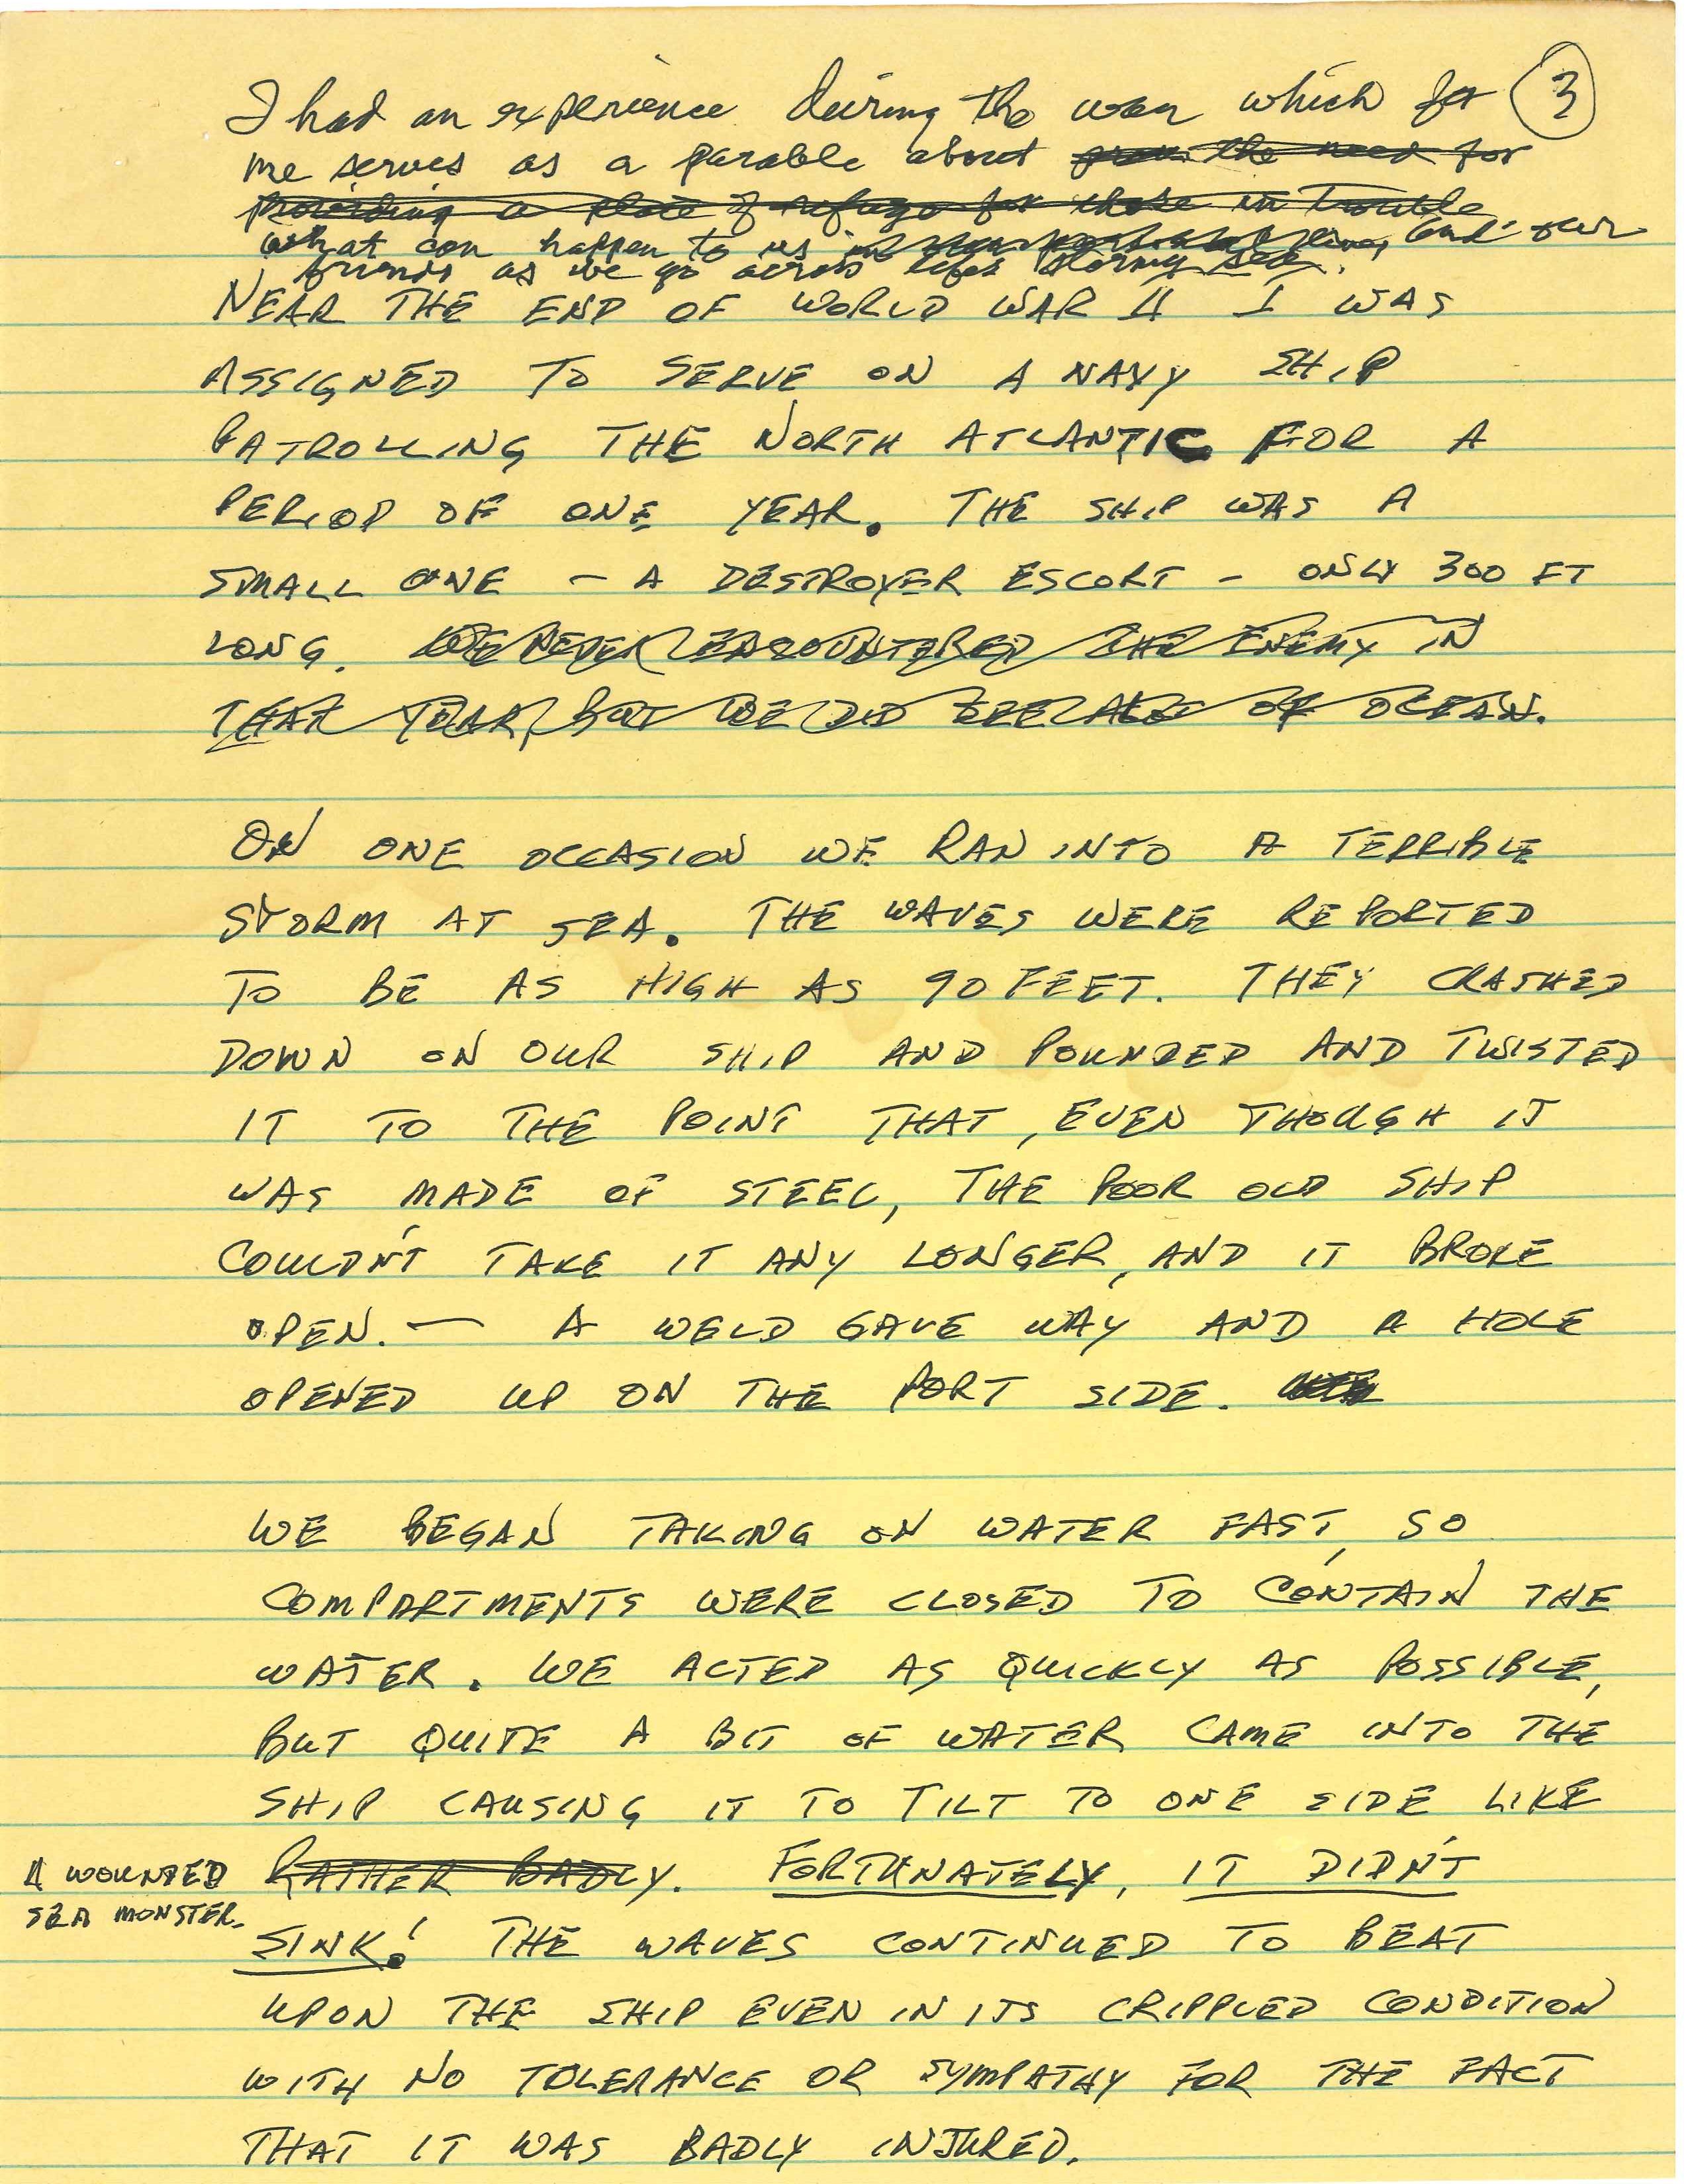 I had an experience during the war which for 3
me serves as a parable about the need for
providing a place of refuge for those in trouble
what can happen to us and our
friends as we go across life's stormy sea.
NEAR THE END OF WORLD WAR II I WAS
ASSIGNED TO SERVE ON A NAVY SHIP
PATROLLING THE NORTH ATLANTIC FOR A
PERIOD OF ONE YEAR. THE SHIP WAS A
SMALL ONE – A DESTROYER ESCORT – ONLY 300 FT
LONG. WE NEVER ENCOUNTERED THE ENEMY IN
THAT YEAR, BUT WE DID SEE A LOT OF OCEAN.
ON ONE OCCASION WE RAN INTO A TERRIBLE
STORM AT SEA. THE WAVES WERE REPORTED
TO BE AS HIGH AS 90 FEET. THEY CRASHED
DOWN ON OUR SHIP AND POUNDED AND TWISTED
IT TO THE POINT THAT, EVEN THOUGH IT
WAS MADE OF STEEL, THE POOR OLD SHIP
COULDN'T TAKE IT ANY LONGER, AND IT BROKE
OPEN. — A WELD GAVE WAY AND A HOLE
OPENED UP ON THE PORT SIDE.
WE BEGAN TAKING ON WATER FAST, SO
COMPARTMENTS WERE CLOSED TO CONTAIN THE
WATER. WE ACTED AS QUICKLY AS POSSIBLE,
BUT QUITE A BIT OF WATER CAME INTO THE
SHIP CAUSING IT TO TILT TO ONE SIDE LIKE
A WOUNDED
SEA MONSTER.
RATHER BADLY. FORTUNATELY, IT DIDN'T
SINK! THE WAVES CONTINUED TO BEAT
UPON THE SHIP EVEN IN ITS CRIPPLED CONDITION
WITH NO TOLERANCE OR SYMPATHY FOR THE FACT
THAT IT WAS BADLY INJURED.